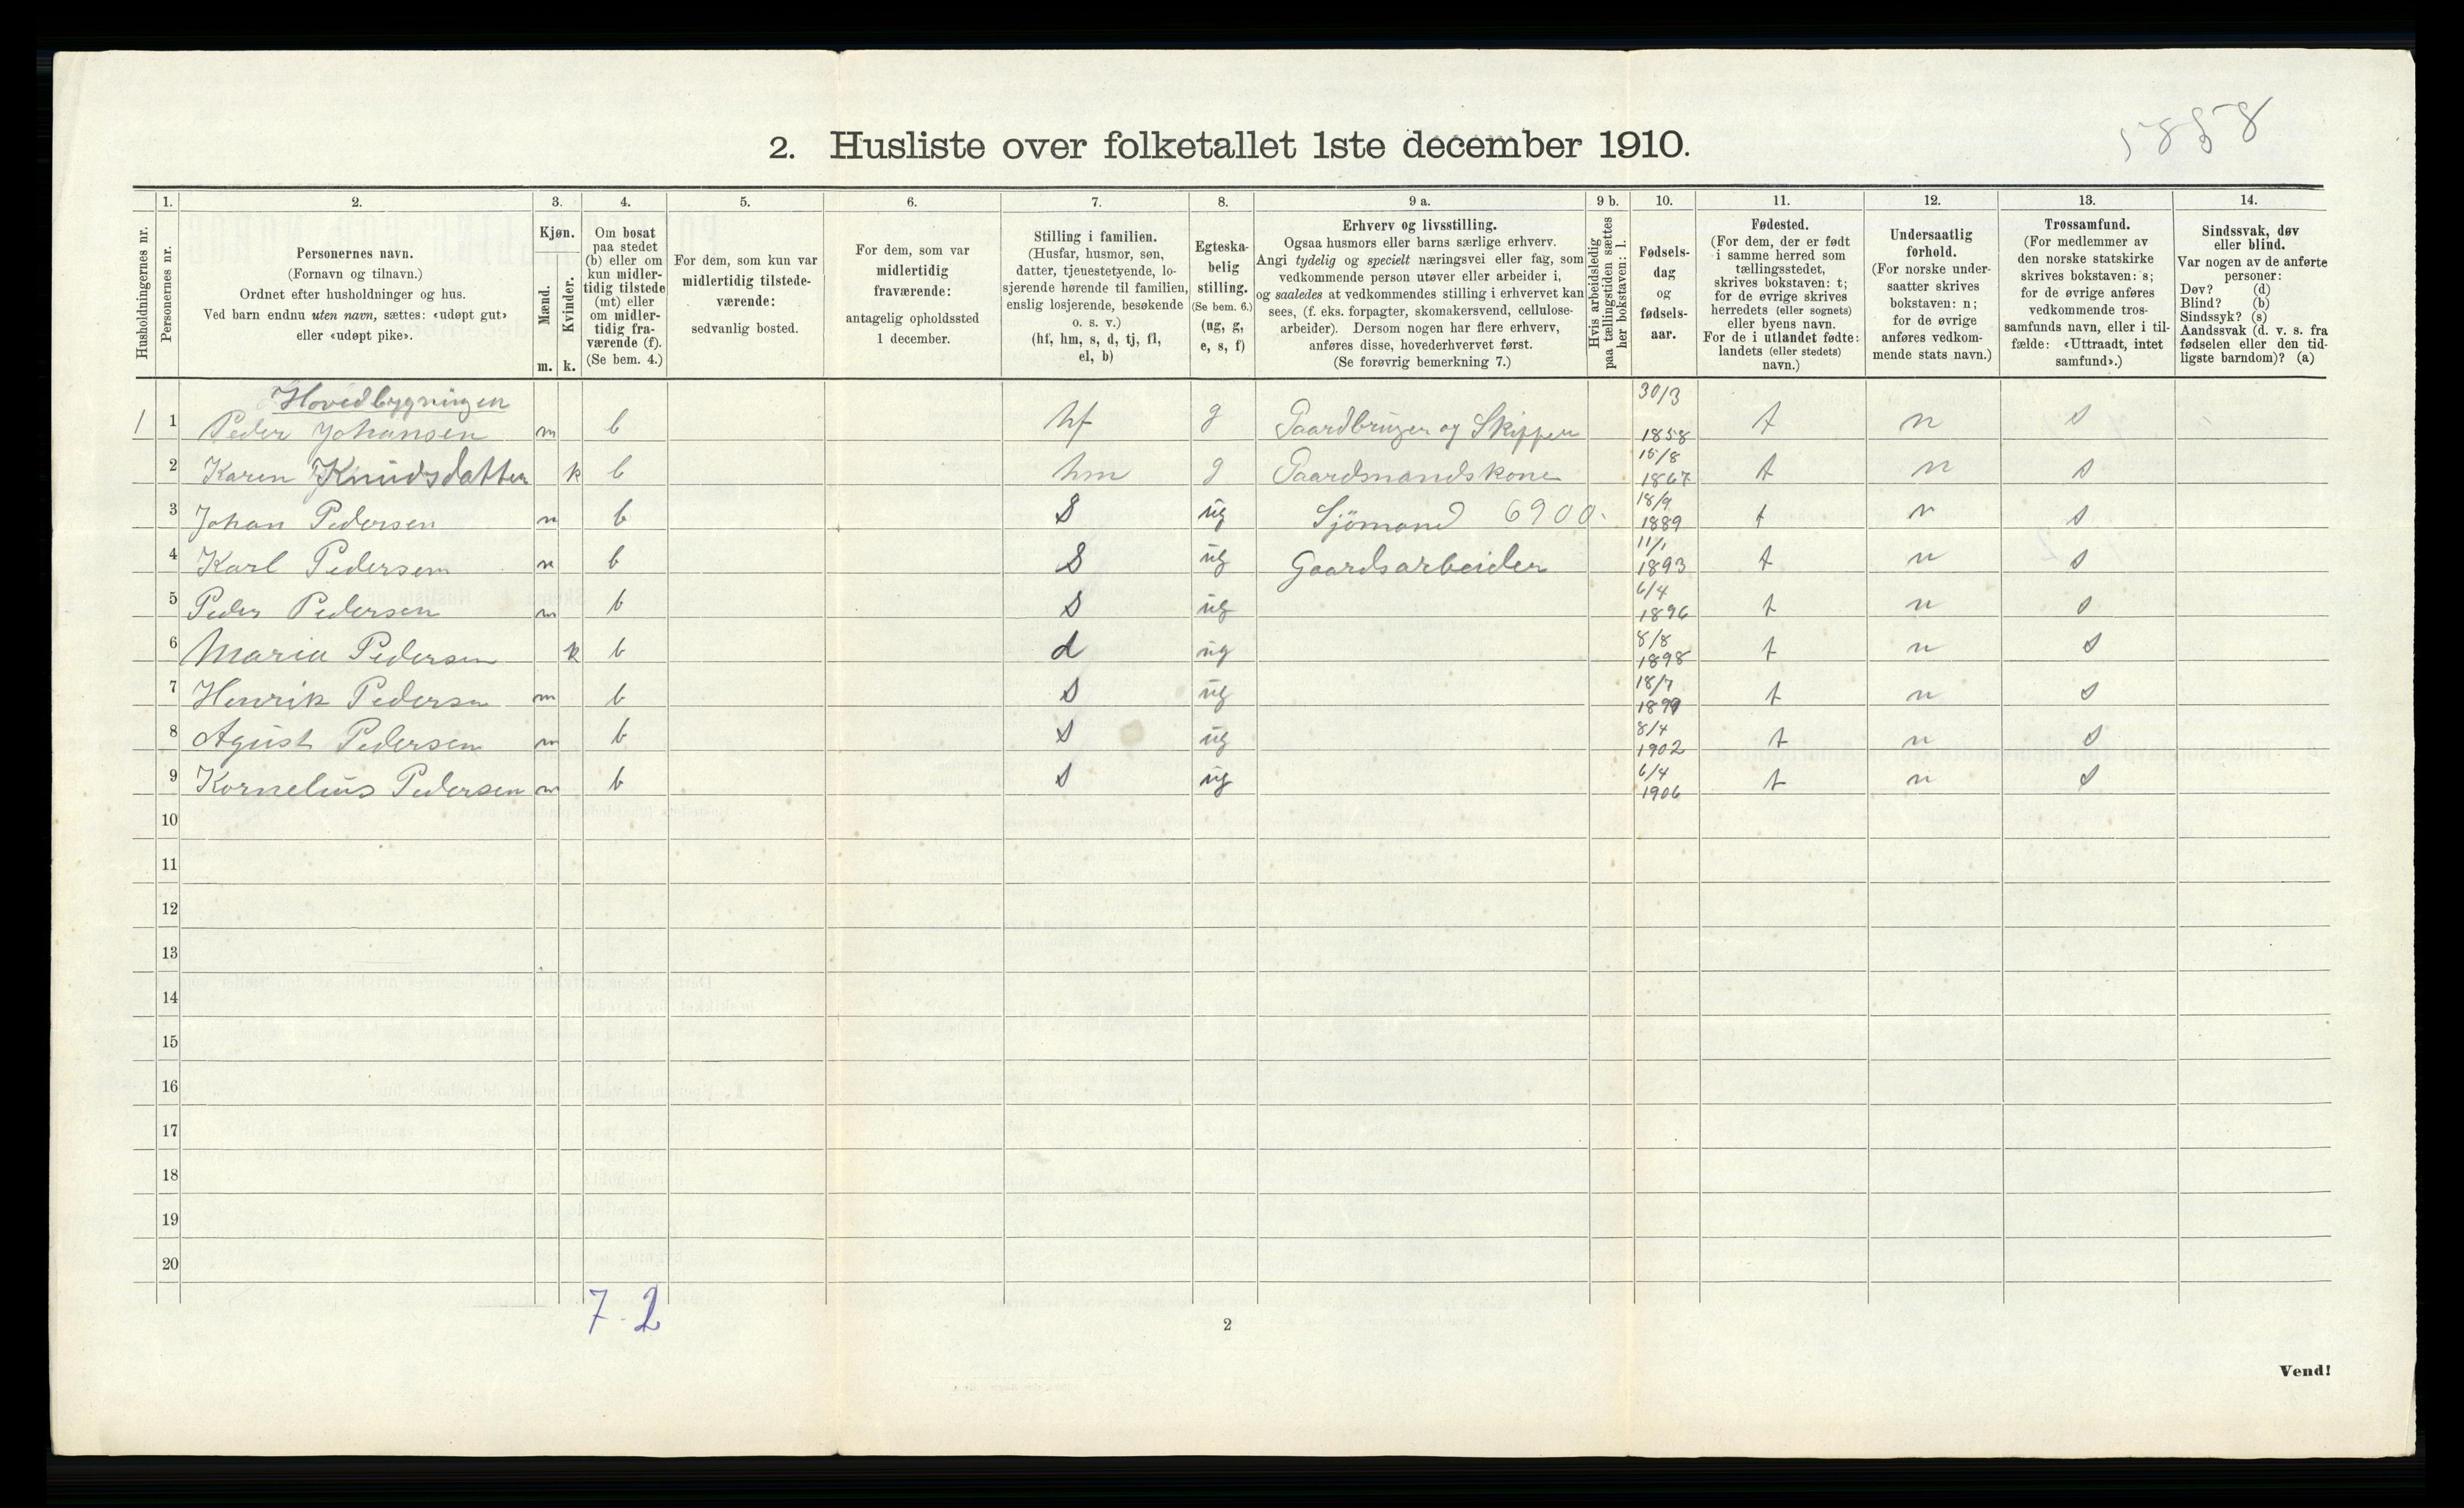 5858
2. Husliste over folketallet 1ste december 1910.
1. 2. 3. 4. 5. 6. 7. 8. 9 a. 9 b. 10. 11. 12. 13. 14.
Husholdningernes nr.
Personernes nr.
Personernes navn.
(Fornavn og tilnavn.)
Ordnet efter husholdninger og hus.
Ved barn endnu uten navn, sættes: «udøpt gut»
eller «udøpt pike».
Kjøn.
Mænd.
Kvinder.
m. k.
Om bosat
paa stedet
(b) eller om
kun midler-
tidig tilstede
(mt) eller
om midler-
tidig fra-
værende (f).
(Se bem. 4.)
For dem, som kun var
midlertidig tilstede-
værende:
sedvanlig bosted.
For dem, som var
midlertidig
fraværende:
antagelig opholdssted
1 december.
Stilling i familien.
(Husfar, husmor, søn,
datter, tjenestetyende, lo-
sjerende hørende til familien,
enslig losjerende, besøkende
o. s. v.)
(hf, hm, s, d, tj, fl,
el, b)
Egteska-
belig
stilling.
(Se bem. 6.)
(ug, g,
e, s, f)
Erhverv og livsstilling.
Ogsaa husmors eller barns særlige erhverv.
Angi tydelig og specielt næringsvei eller fag, som
vedkommende person utøver eller arbeider i,
og saaledes at vedkommendes stilling i erhvervet kan
sees, (f. eks. forpagter, skomakersvend, cellulose-
arbeider). Dersom nogen har flere erhverv,
anføres disse, hovederhvervet først.
(Se forøvrig bemerkning 7.)
Hvis arbeidsledig
paa tællingstiden sættes
her bokstaven: l.
Fødsels-
dag
og
fødsels-
aar.
Fødested.
(For dem, der er født
i samme herred som
tællingsstedet,
skrives bokstaven: t;
for de øvrige skrives
herredets (eller sognets)
eller byens navn.
For de i utlandet fødte:
landets (eller stedets)
navn.)
Undersaatlig
forhold.
(For norske under-
saatter skrives
bokstaven: n;
for de øvrige
anføres vedkom-
mende stats navn.)
Trossamfund.
(For medlemmer av
den norske statskirke
skrives bokstaven: s;
for de øvrige anføres
vedkommende tros-
samfunds navn, eller i til-
fælde: «Uttraadt, intet
samfund».)
Sindssvak, døv
eller blind.
Var nogen av de anførte
personer:
Døv? (d)
Blind? (b)
Sindssyk? (s)
Aandssvak (d. v. s. fra
fødselen eller den tid-
ligste barndom)? (a)
Hovedbygningen
1 1 Peder Johansen m b hf g Gaardbruger og Skipper 30/3 1858 t n s
2 Karen Knudsdatter k b hm g Gaardmandskone 15/8 1867 t n s
3 Johan Pedersen m b s ug Sjömand 6900. 18/9 1889 t n s
4 Karl Pedersen m b s ug Gaardsarbeider 11/1 1893 t n s
5 Peder Pedersen m b s ug 6/4 1896 t n s
6 Maria Pedersen k b d ug 8/8 1898 t n s
7 Henrik Pedersen m b s ug 18/7 1899 t n s
8 Agust Pedersen m b s ug 8/4 1902 t n s
9 Kornelius Pedersen m b s ug 6/4 1906 t n s
10
11
12
13
14
15
16
17
18
19
20
7-2
2
Vend!